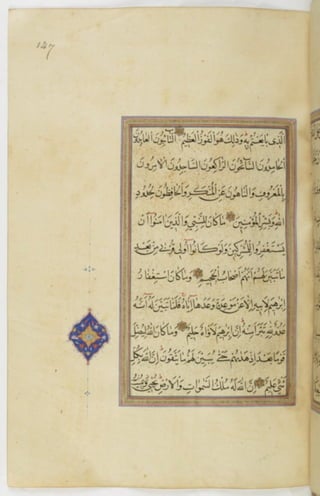 147
الذى بايعتم به وذلك هو الفوز العظيم التائبون العابدون
الحامدون السائحون الراكعون الساجدون الآمرون
بالمعروف والناهون عن المنكر والحافظون لحدود
الله وبشر المؤمنين ما كان للنبى والذين امنوا ان
يستغفروا للمشركين ولو كانوا اولى قربى من بعد
ما تبين لهم انهم اصحاب الجحيم وما كان استغفار
ابرهيم لابيه الا عن موعدة وعدها اياه فلما تبين له انه
عدو لله تبرأ منه ان ابرهيم لاواه حليم وما كان الله ليضل
قوما بعد اذ هديهم حتى يبين لهم ما يتقون ان الله بكل
شىء عليم ان الله له ملك السموات والارض يحيى ويميت